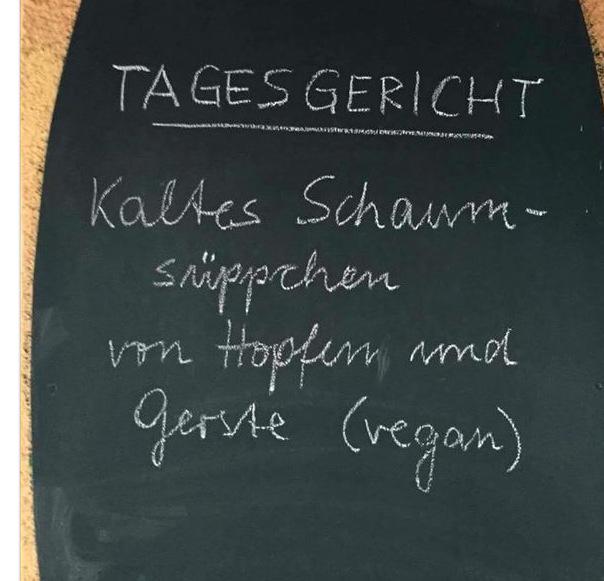 TAGESGERICHT
Kaltes Schaum-
süppchen
von Hopfen und
Gerste (vegan)